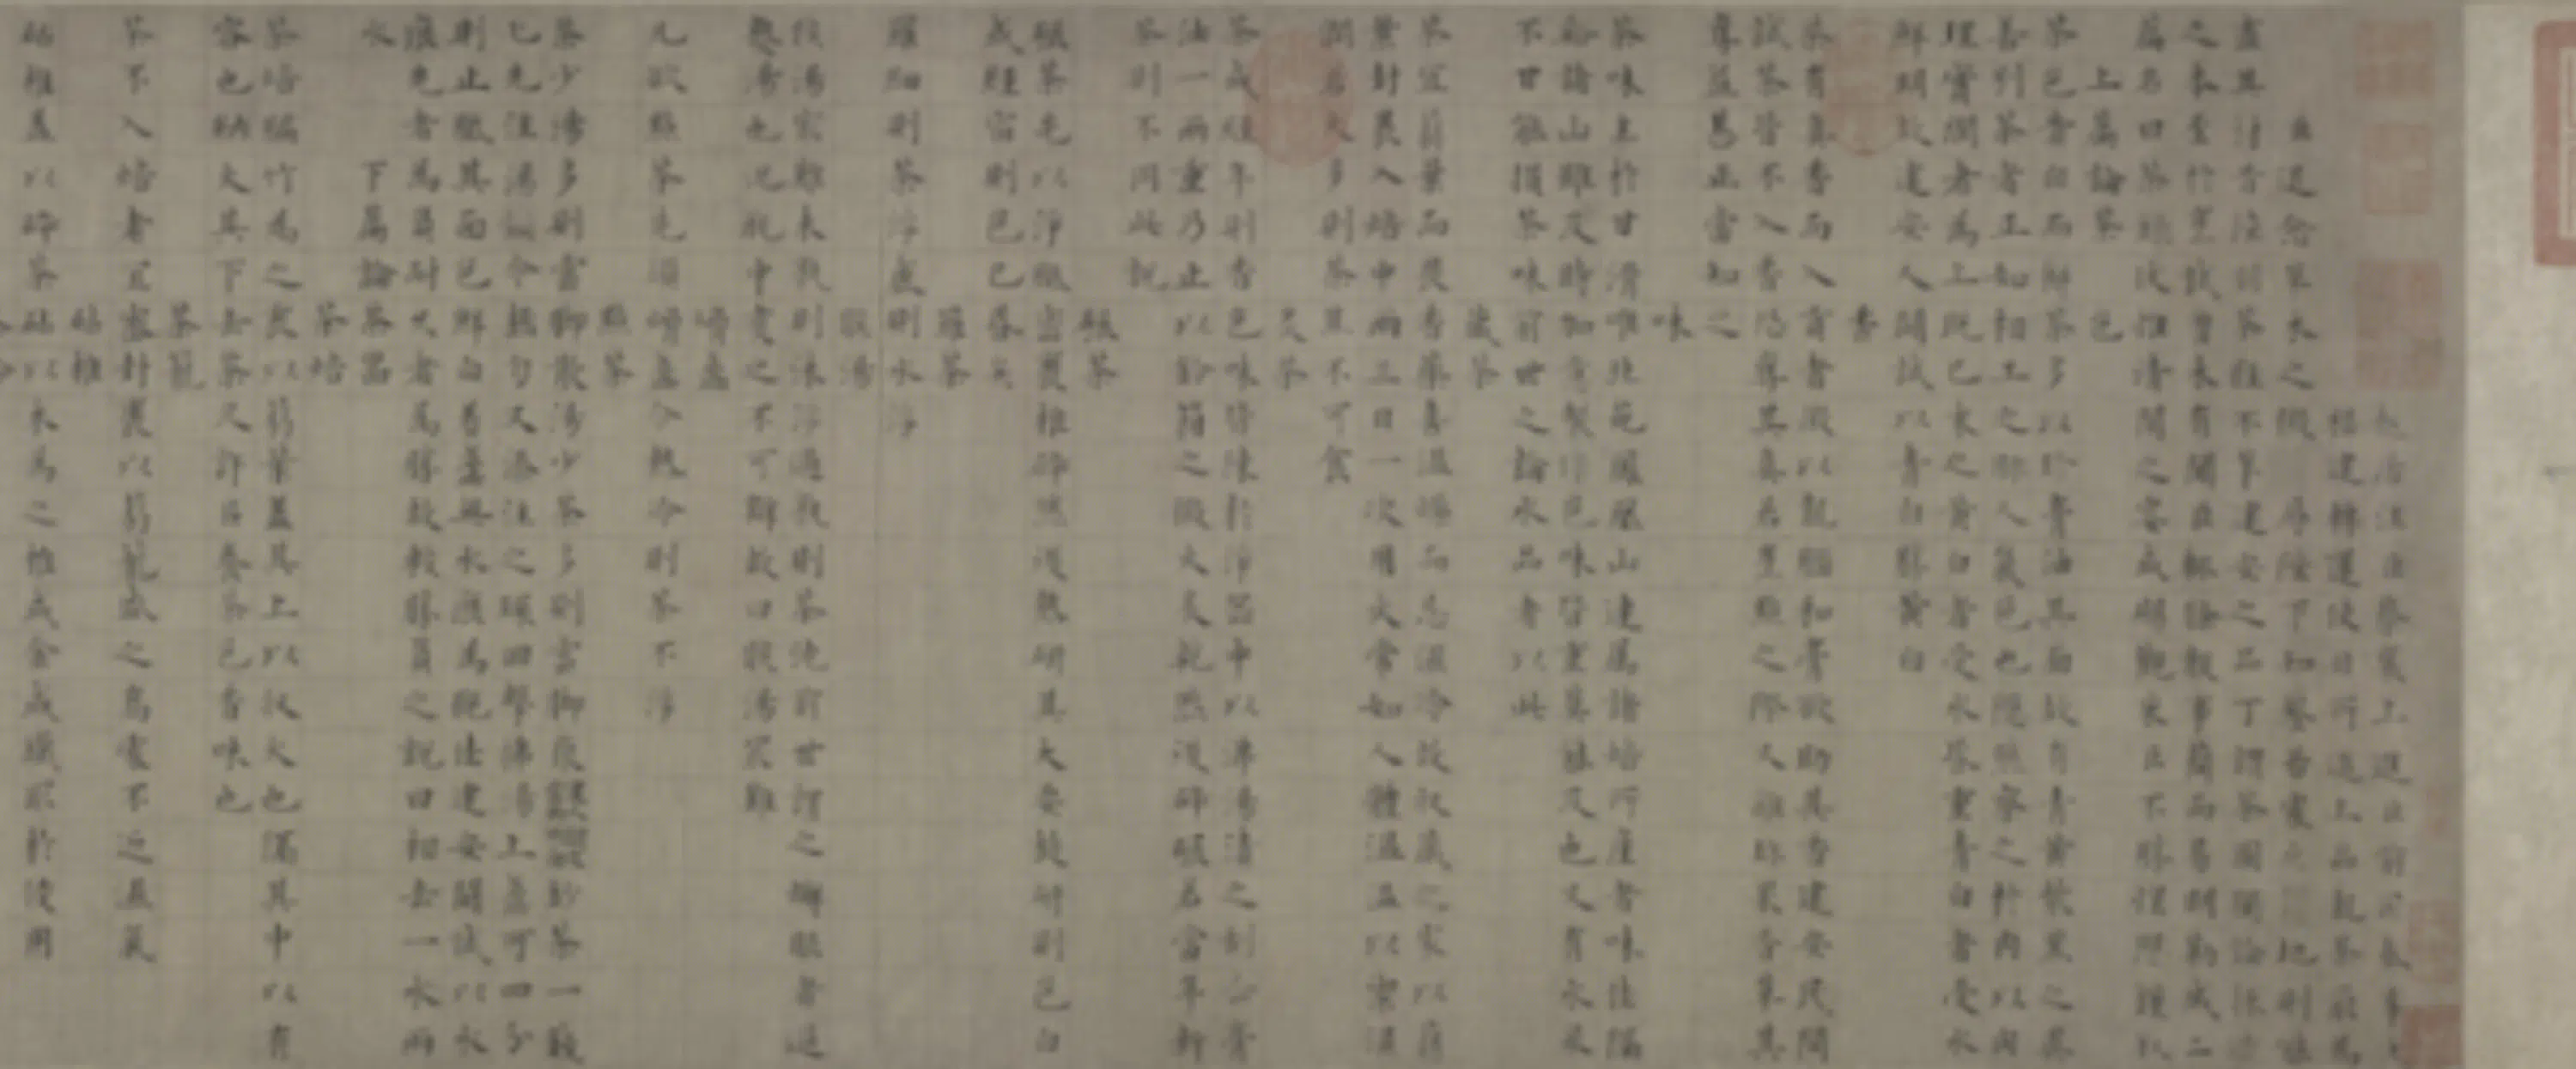 起居注臣蔡襄上進臣前因奏事
福建轉運使日所進上品龍茶最為
臣退念草木之微 陛下知鑒若處 地則能
盡其材昔陸羽茶經不第建安之品丁謂茶圖獨論採造
之本至於烹試曾未有聞臣輒條數事簡而易明勒成二
篇名曰茶錄伏惟清閒之宴或賜觀采臣不勝惶懼謹
上篇論茶
色
茶色貴白而餅茶多以珍膏油其面故有青黃紫黑之異
善別茶者正如相工之眎人氣色也隱然察之於內以肉
理實潤者為上既已末之黃白者受水昏重青白者受水
鮮明故建安人鬬試以青白勝黃白
香
茶有真香而入貢者微以龍腦和膏欲助其香建安民間
試茶皆不入香恐奪其真若烹點之際又雜珍果香草其
奪益甚正當知之
味
茶味主於甘滑唯北苑鳳凰山連屬諸焙所產者味佳隔
谿諸山雖及時加意製作色味皆重莫能及也又有水泉
不甘能損茶味前世之論水品者以此
藏茶
茶宜蒻葉而畏香藥喜溫燥而忌濕冷故收藏之家以蒻
葉封裹入焙中兩三日一次用火常如人體溫溫以禦濕
潤若火多則茶焦不可食
炙茶
茶或經年則香色味皆陳於淨器中以沸湯漬之刮去膏
油一兩重乃止以鈐箝之微火炙乾然後碎碾若當年新
茶則不用此說
碾茶
碾茶先以淨紙密裹椎碎然後熟研其大要旋研則色白
或經宿則色已昏矣
羅茶
羅細則茶浮麤則水浮
候湯
候湯最難未熟則沫浮過熟則茶沈前世謂之蟹眼者過
熟湯也況瓶中煮之不可辯故曰候湯最難
熁盞
凡欲點茶先須熁盞令熱冷則茶不浮
點茶
茶少湯多則雲腳散湯少茶多則 鈔茶一錢
匕先注湯調令極勻又添注之環迴擊拂湯上盞可四分
則止眂其面色鮮白著盞無水痕為絕佳建安鬬試以水
痕先者為負耐久者為勝故較勝負之說曰相去一水兩
水
下篇論茶器
茶焙
茶焙編竹為之裹以蒻葉蓋其上以收火也隔其中以有
容也納火其下去茶尺許 養茶色香味也
茶籠
茶不入焙者宜密封裹以蒻籠盛之高處不近濕氣
砧椎
砧椎蓋以碎茶砧以木為之椎或金或鐵取於便用